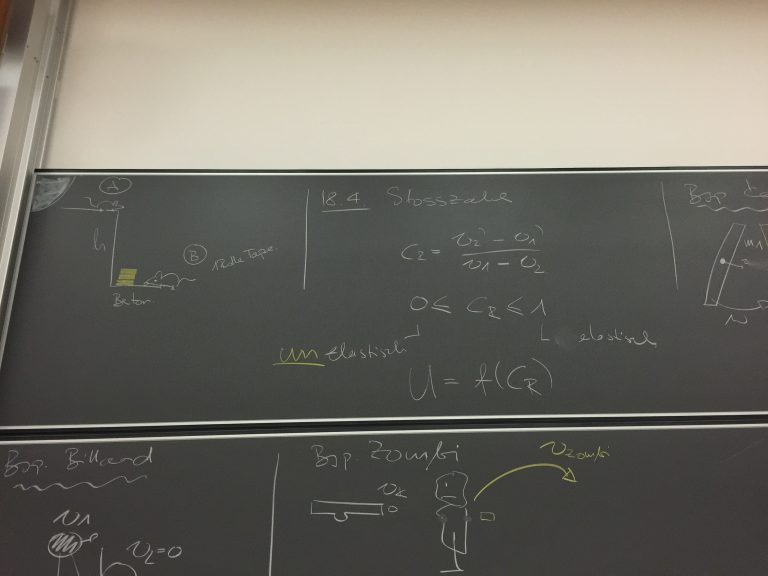 A
h
B
Beton
18.4. Stosszahl
C₂ = v₂' - v₁' / v₁ - v₂
0 ≤ C_R ≤ 1
unelastisch
elastisch
U = f(C_R)
Bsp.
m1
Bsp. Billard
v1
v₂=0
Bsp. Zombi
v_Zombi